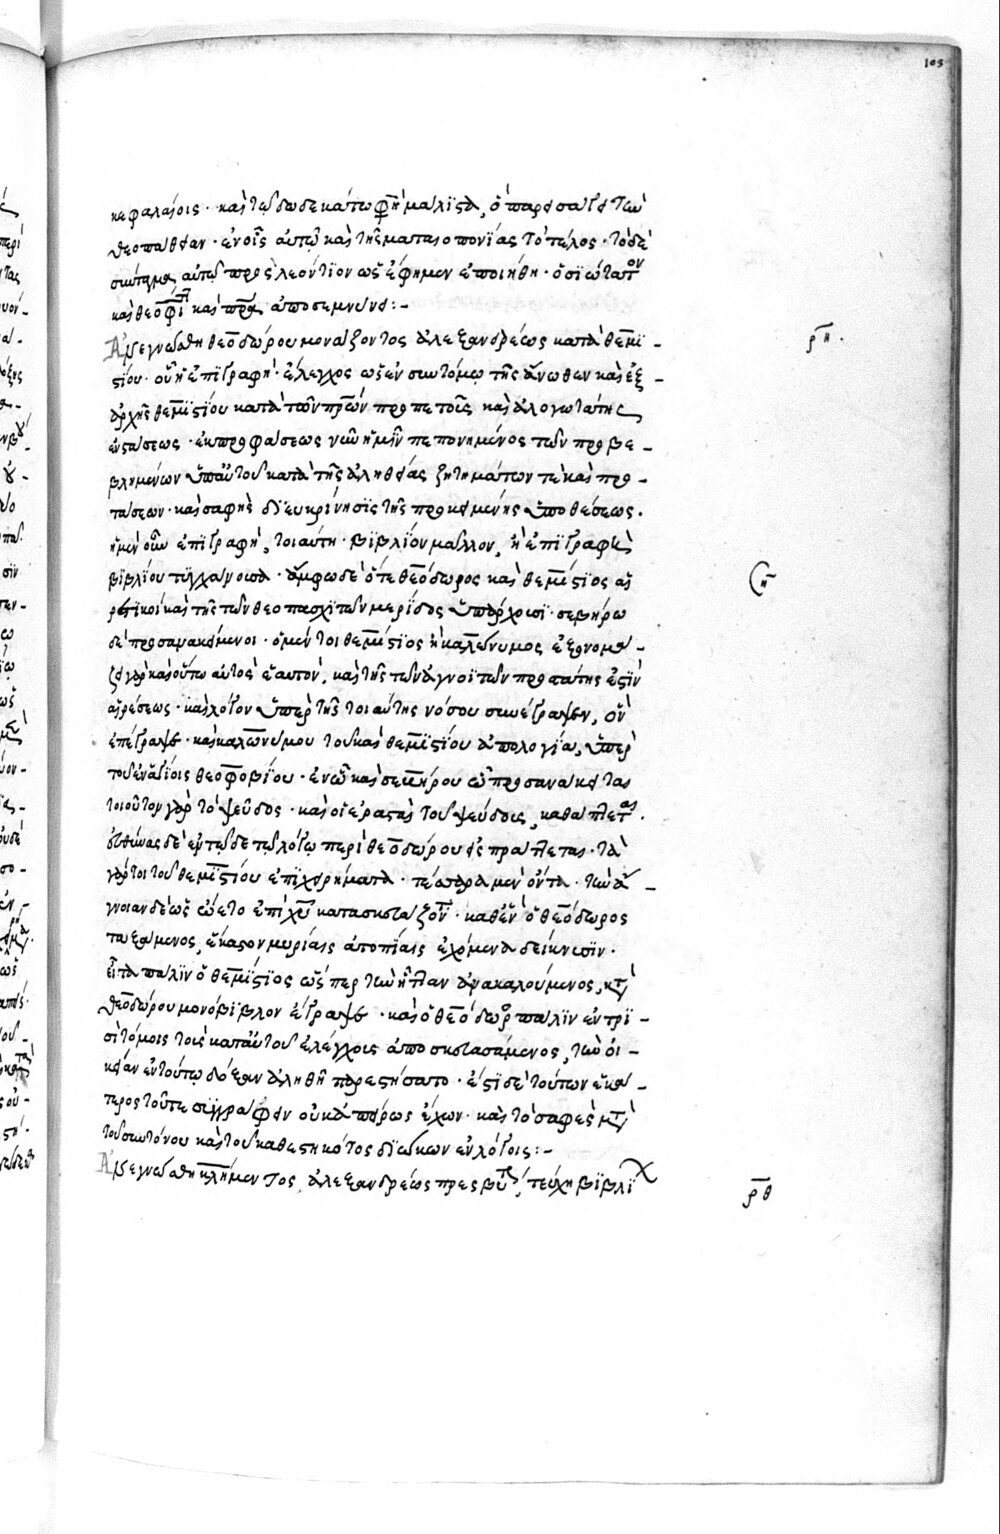 103
κεφαλαίοις · καὶ τῷ δωδεκάτῳ φημὶ μάλιστα, ὃ παρεισάγει τὴν
θεοπάθειαν · ἐν οἷς αὐτῷ καὶ τῆς ματαιοπονίας τὸ τέλος · τὸ δὲ
σύνταγμα αὐτῷ πρὸς λεόντιον ὡς ἔφημεν ἐποιήθη · ὃν ὁσιώτατον
καὶ θεοφιλῆ καὶ πατέρα ἀποσεμνύνει :-
Ἀνεγνώσθη θεοδώρου μονάζοντος ἀλεξανδρέως κατὰ θεμι-
στίου · οὗ ἡ ἐπιγραφὴ · ἔλεγχος ὡς ἐν συντόμῳ τῆς ἄνωθεν καὶ ἐξ
ἀρχῆς θεμιστίου κατὰ τῶν πατέρων προπετοῦς καὶ ἀλογωτάτης
ἐνστάσεως · ἐκ προφάσεως νῦν ἡμῖν πεπονημένος τῶν προβε-
βλημένων ὑπ' αὐτοῦ κατὰ τῆς ἀληθείας ζητημάτων τε καὶ προ-
τάσεων · καὶ σαφὴς διευκρίνησις τῆς προκειμένης ὑποθέσεως.
ἡ μὲν οὖν ἐπιγραφὴ, τοιαύτη · βιβλίον μᾶλλον, ἢ ἐπιγραφὴ
βιβλίου τυγχάνουσα · ἄμφω δὲ ὅ τε θεόδωρος καὶ θεμίστιος αἱ
ρετικοὶ καὶ τῆς τῶν θεοπασχιτῶν μερίδος ὑπάρχουσι · σεβήρῳ
δὲ προσανακείμενοι · ὁ μέντοι θεμίστιος ἢ καλώνυμος ἐξονομά-
ζει γὰρ καὶ οὕτω αὐτὸς ἑαυτὸν, καὶ τῆς τῶν ἀγνοιτῶν προστάτης ἐστὶν
αἱρέσεως · καὶ λόγον ὑπὲρ τῆς τοιαύτης νόσου συνέγραψεν, ὃν
ἐπέγραψε · καὶ καλωνύμου τοῦ καὶ θεμιστίου ἀπολογία, ὑπὲρ
τοῦ ἐν ἁγίοις θεοφοβίου · ἐν ᾧ καὶ σευήρου ᾧ προσανάκειται
τοιοῦτον γὰρ τὸ ψεῦδος · καὶ οἱ ἐρασταὶ τοῦ ψεύδους, καθάπτεται.
εὐθύνας δὲ ἐν τῷδε τῷ λόγῳ περὶ θεοδώρου εἰσπράττεται · τὰ
γάρ τοι τοῦ θεμιστίου ἐπιχειρήματα · τέσσαρα μὲν ὄντα · τὴν ἄ-
γνοιαν δὲ ὡς ᾤετο ἐπὶ χριστοῦ κατασκευάζοντα · καθ' ἓν ὁ θεόδωρος
ταξάμενος, ἕκαστον μυρίαις ἀτοπίαις ἐχόμενα δείκνυσιν.
εἶτα πάλιν ὁ θεμίστιος ὥσπερ τὴν ἧτταν ἀνακαλούμενος, κατὰ
θεοδώρου μονόβιβλον ἔγραψε · καὶ ὁ θεόδωρος πάλιν ἐν τρι-
σὶ τόμοις τοὺς κατ' αὐτοῦ ἐλέγχους ἀποσκευασάμενος, τὴν οἰ-
κείαν ἐν τούτῳ δόξαν ἀληθῆ παρεστήσατο · ἔστι δὲ τούτων ἑκά-
τερος τοῦ τε συγγράφειν οὐκ ἀπείρως ἔχων · καὶ τὸ σαφὲς μετὰ
τοῦ συντόνου καὶ τοῦ καθεστηκότος διώκων ἐν λόγοις :-
Ἀνεγνώσθη κλήμεντος, ἀλεξανδρέως πρεσβυτέρου, τεύχη βιβλί
ρη.
ρθ